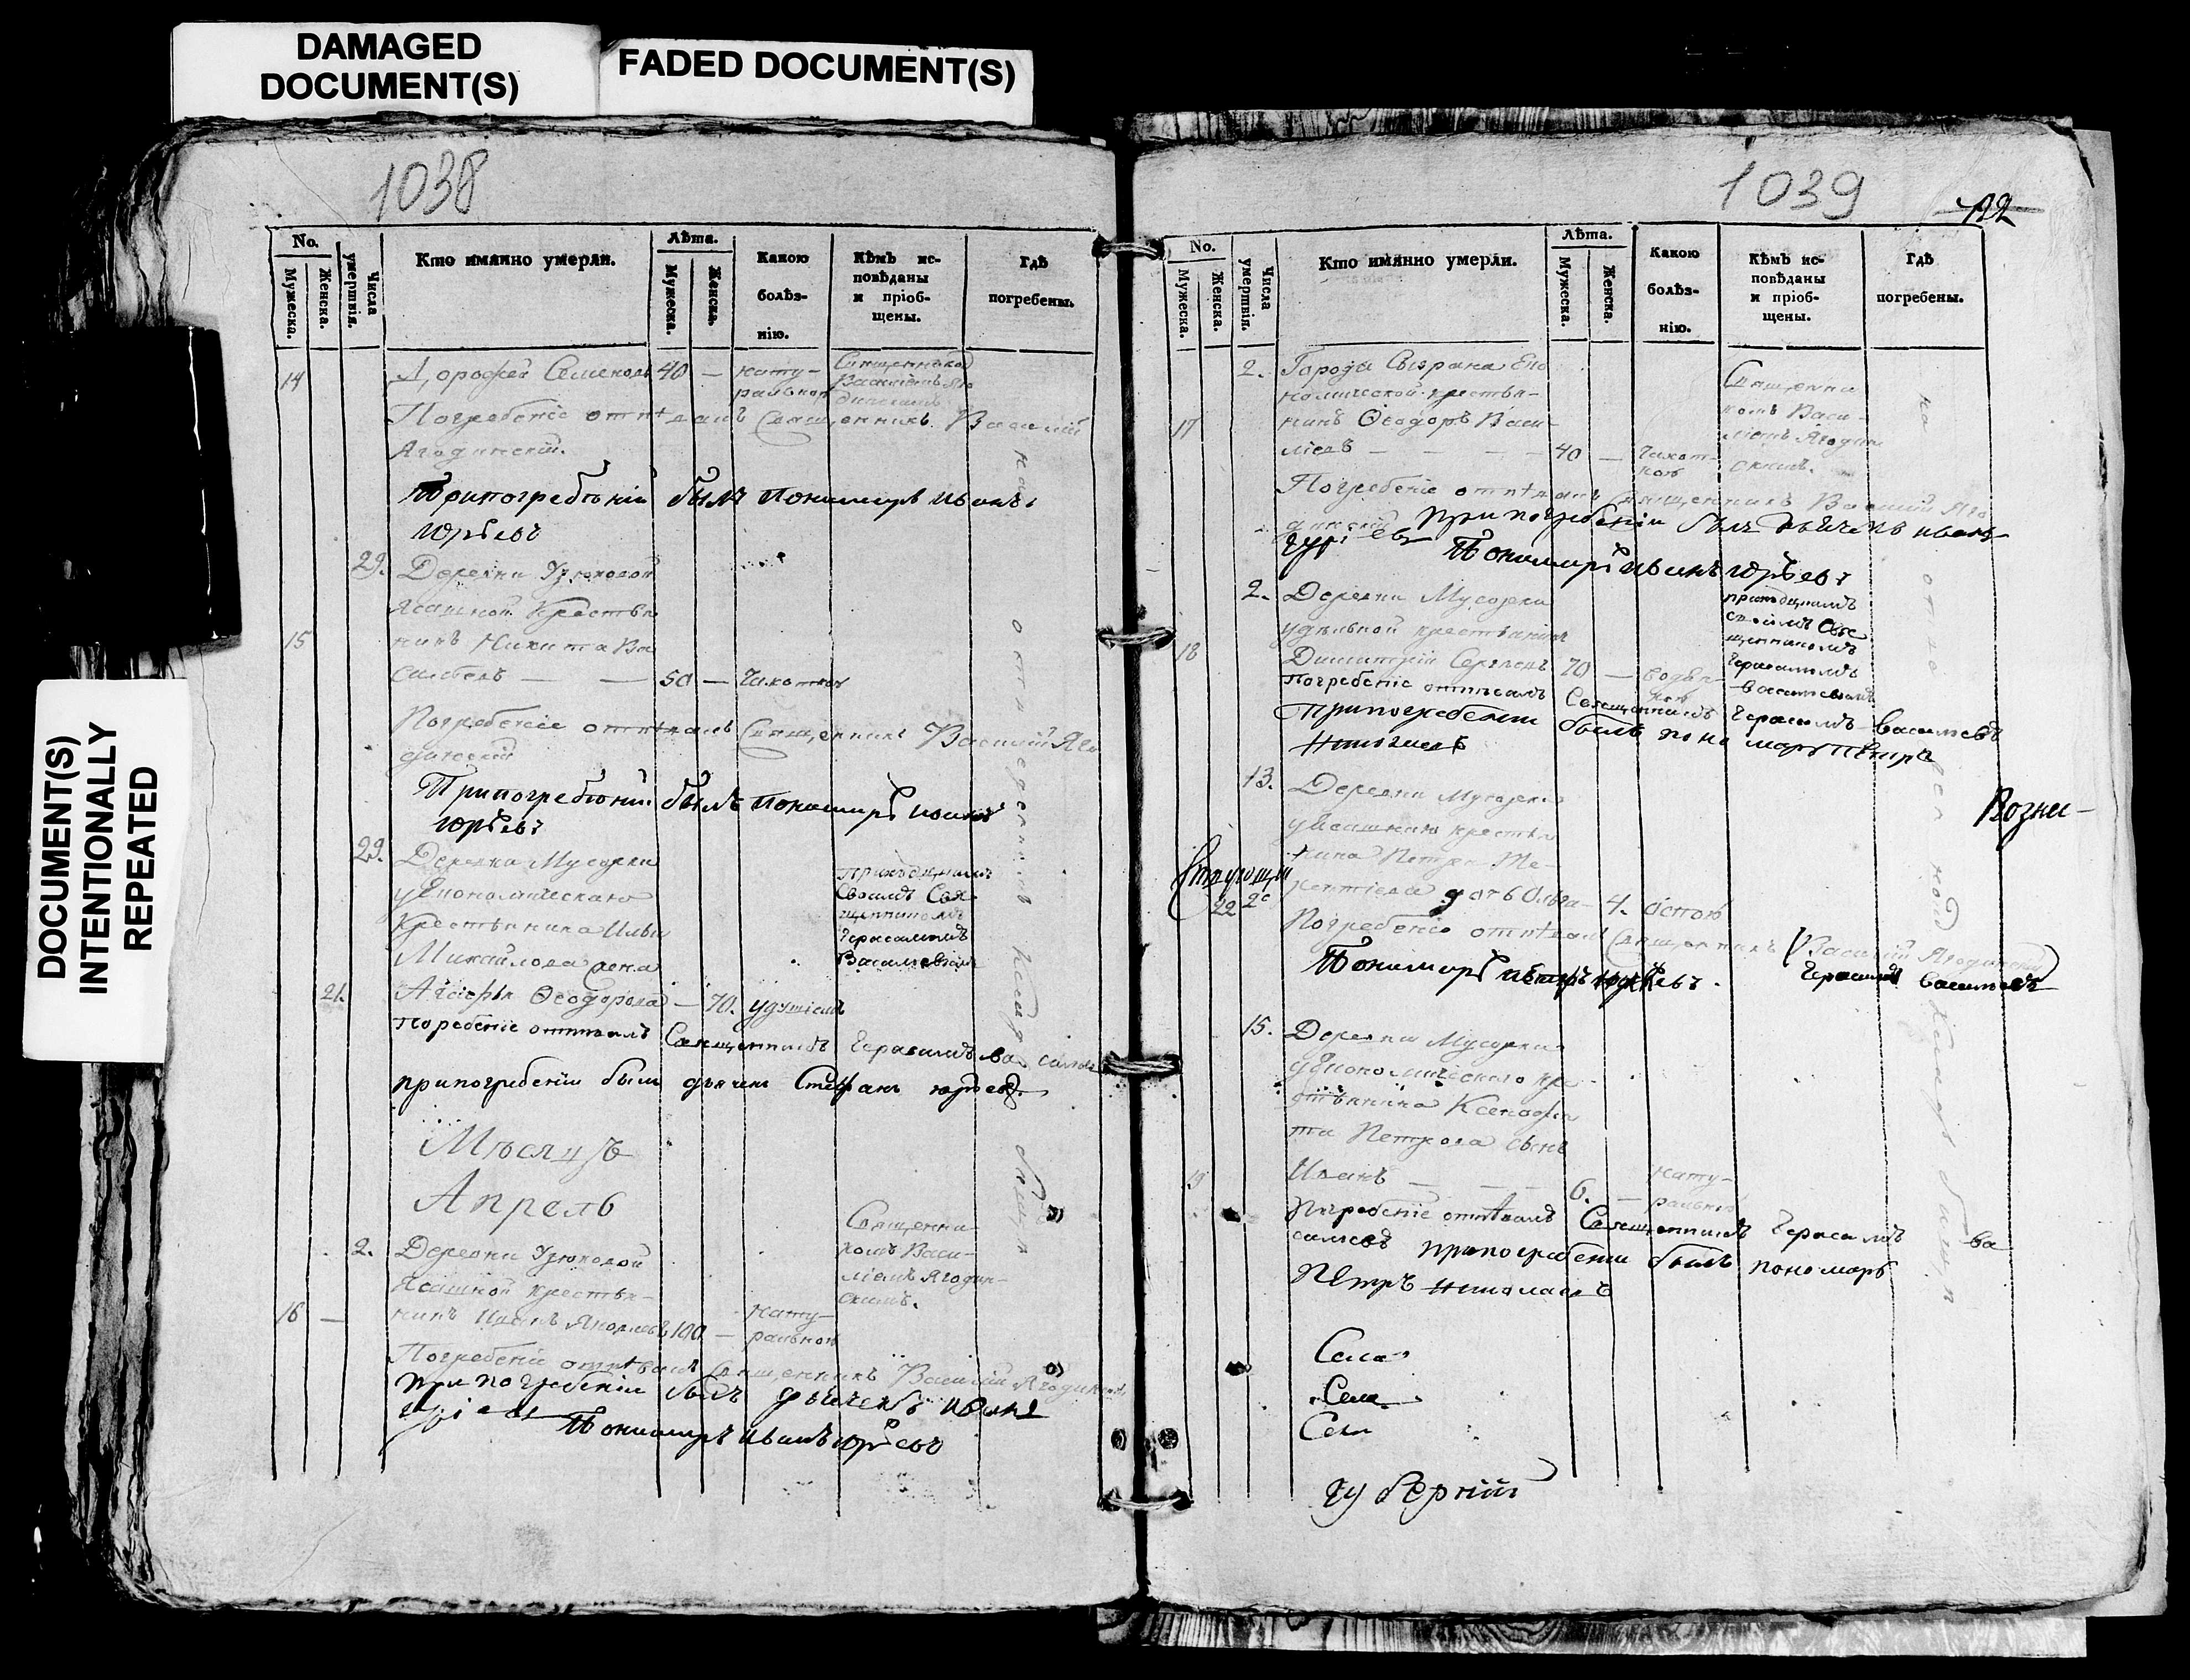 DAMAGED
DOCUMENT(S)
FADED DOCUMENT(S)
DOCUMENT(S)
INTENTIONALLY
REPEATED
1038
No.
Мужеска.
Женска.
Числа умертвія.
Кто имянно умерли.
Лѣта.
Мужеска.
Женска.
Какою
болѣз-
нію.
Кѣмъ ис-
повѣданы
и пріоб-
щены.
Гдѣ
погребены.
14 Дорофей Семеновъ 40 — нату-
ральной
Священником
Василіемъ Яго
динскимъ
Погребеніе отпѣвалъ Священникъ Василій
Ягодинскій.
Припогребеніи былъ Пономарь Иванъ
Юрьевъ
29. Деревни Узюковой
Ясашной Крестья
15 нинъ Никита Ва
сильевъ — — 50 — Чахоткой
Погребеніе отпѣвалъ Священникъ Василій Яго
динской
Припогребеніи былъ Пономарь Иванъ
Юрьевъ
29. Деревни Мусорки
Экономическаго
Крестьянина Ильи
Михайлова жена
21. Агафья Ѳеодорова — 70. удушіемъ
приходскимъ
Своимъ Свя
щенникомъ
Герасимомъ
Васильевымъ
Погребеніе отпѣвалъ Священникъ Герасимъ Ва сильевъ
припогребеніи былъ дьячекъ Стефанъ юрьевъ
Мѣсяцъ
Апрель
2. Деревни Узюковой
Ясашной крестья-
16 — нинъ Иванъ Яковлевъ 100 — нату-
ральной
Священни
комъ Васи-
ліемъ Ягодин-
скимъ.
Погребеніе отпѣвалъ Священникъ Василій Ягодинской
при погребеніи былъ дьячекъ Иванъ
Пономарь Иванъ Юрьевъ
на отведенномъ кладбище
1039
122
No.
Мужеска.
Женска.
Числа умертвія.
Кто имянно умерли.
Лѣта.
Мужеска.
Женска.
Какою
болѣз-
нію.
Кѣмъ ис-
повѣданы
и пріоб-
щены.
Гдѣ
погребены.
2. Города Сызрана Эко
номической крестья-
17 нинъ Ѳеодоръ Васи-
льевъ — — — — 40 — Чахот-
кой
Священни
комъ Васи-
ліемъ Ягодин
скимъ.
Погребеніе отпѣвалъ Священникъ Василій Яго
динской при погребеніи былъ дьячекъ иванъ
Пономарь Иванъ Юрьевъ
2. Деревни Мусорки
удѣльной крестьянинъ
18 Димитрій Сергѣевъ 70 — водян-
кой
приходскимъ
своимъ Свя
щенникомъ
Герасимомъ
Васильевымъ
Погребеніе отпѣвалъ Священникъ Герасимъ Васильевъ
припогребеніи былъ пономарь Петръ
Николаевъ
13. Деревни Мусорки
Ясашнаго крестья
нина Петра Те-
рентьева дочь Ольга — 4. оспою
22
Погребеніе отпѣвалъ Священникъ Василій Ягодинской
Герасимъ Васильевъ
Пономарь
Возне-
15. Деревни Мусорки
Экономическаго кре
стьянина Ксенофон
та Петрова сынъ
19 Иванъ — — — 6. — нату-
ральной
Погребеніе отпѣвалъ Священникъ Герасимъ Ва
сильевъ припогребеніи былъ пономарь
Петръ Николаевъ
Села
Села
Села
губерніи